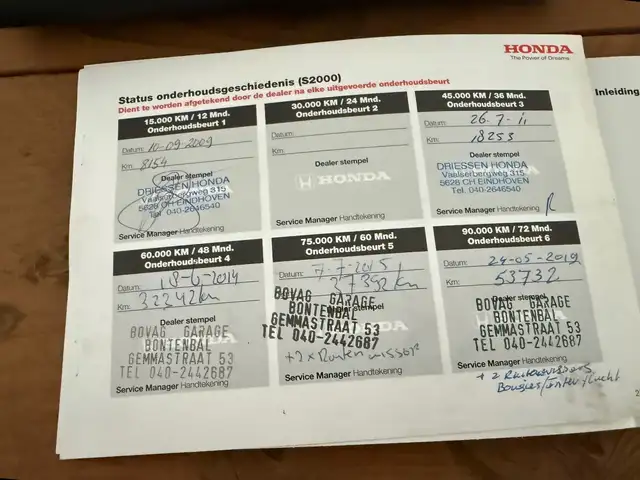 HONDA
The Power of Dreams
Status onderhoudsgeschiedenis (S2000)
Dient te worden afgetekend door de dealer na elke uitgevoerde onderhoudsbeurt
Inleiding
15.000 KM / 12 Mnd.
Onderhoudsbeurt 1
Datum: 10-09-2009
Km: 8154
Dealer stempel
DRIESSEN HONDA
Vaalserbergweg 315
5628 CH EINDHOVEN
Tel. 040-2646540
Service Manager Handtekening
30.000 KM / 24 Mnd.
Onderhoudsbeurt 2
Datum:
Km:
Dealer stempel
HONDA
Service Manager Handtekening
45.000 KM / 36 Mnd.
Onderhoudsbeurt 3
Datum: 26-7-11
Km: 18253
Dealer stempel
DRIESSEN HONDA
Vaalserbergweg 315
5628 CH EINDHOVEN
Tel. 040-2646540
Service Manager Handtekening
60.000 KM / 48 Mnd.
Onderhoudsbeurt 4
Datum: 18-6-2014
Km: 32242km
Dealer stempel
BOVAG GARAGE
BONTENBAL
GEMMASTRAAT 53
TEL 040-2442687
Service Manager Handtekening
75.000 KM / 60 Mnd.
Onderhoudsbeurt 5
Datum: 7-7-2015
Km: 37392km
BOVAG GARAGE
BONTENBAL
GEMMASTRAAT 53
TEL 040-2442687
+2x Ruitenwisser
Service Manager Handtekening
90.000 KM / 72 Mnd.
Onderhoudsbeurt 6
Datum: 24-05-2019
Km: 53732
Dealer stempel
BOVAG GARAGE
BONTENBAL
GEMMASTRAAT 53
TEL 040-2442687
Service Manager Handtekening
+ 2 Ruitenwissers
Bougies/Inter/lucht
2